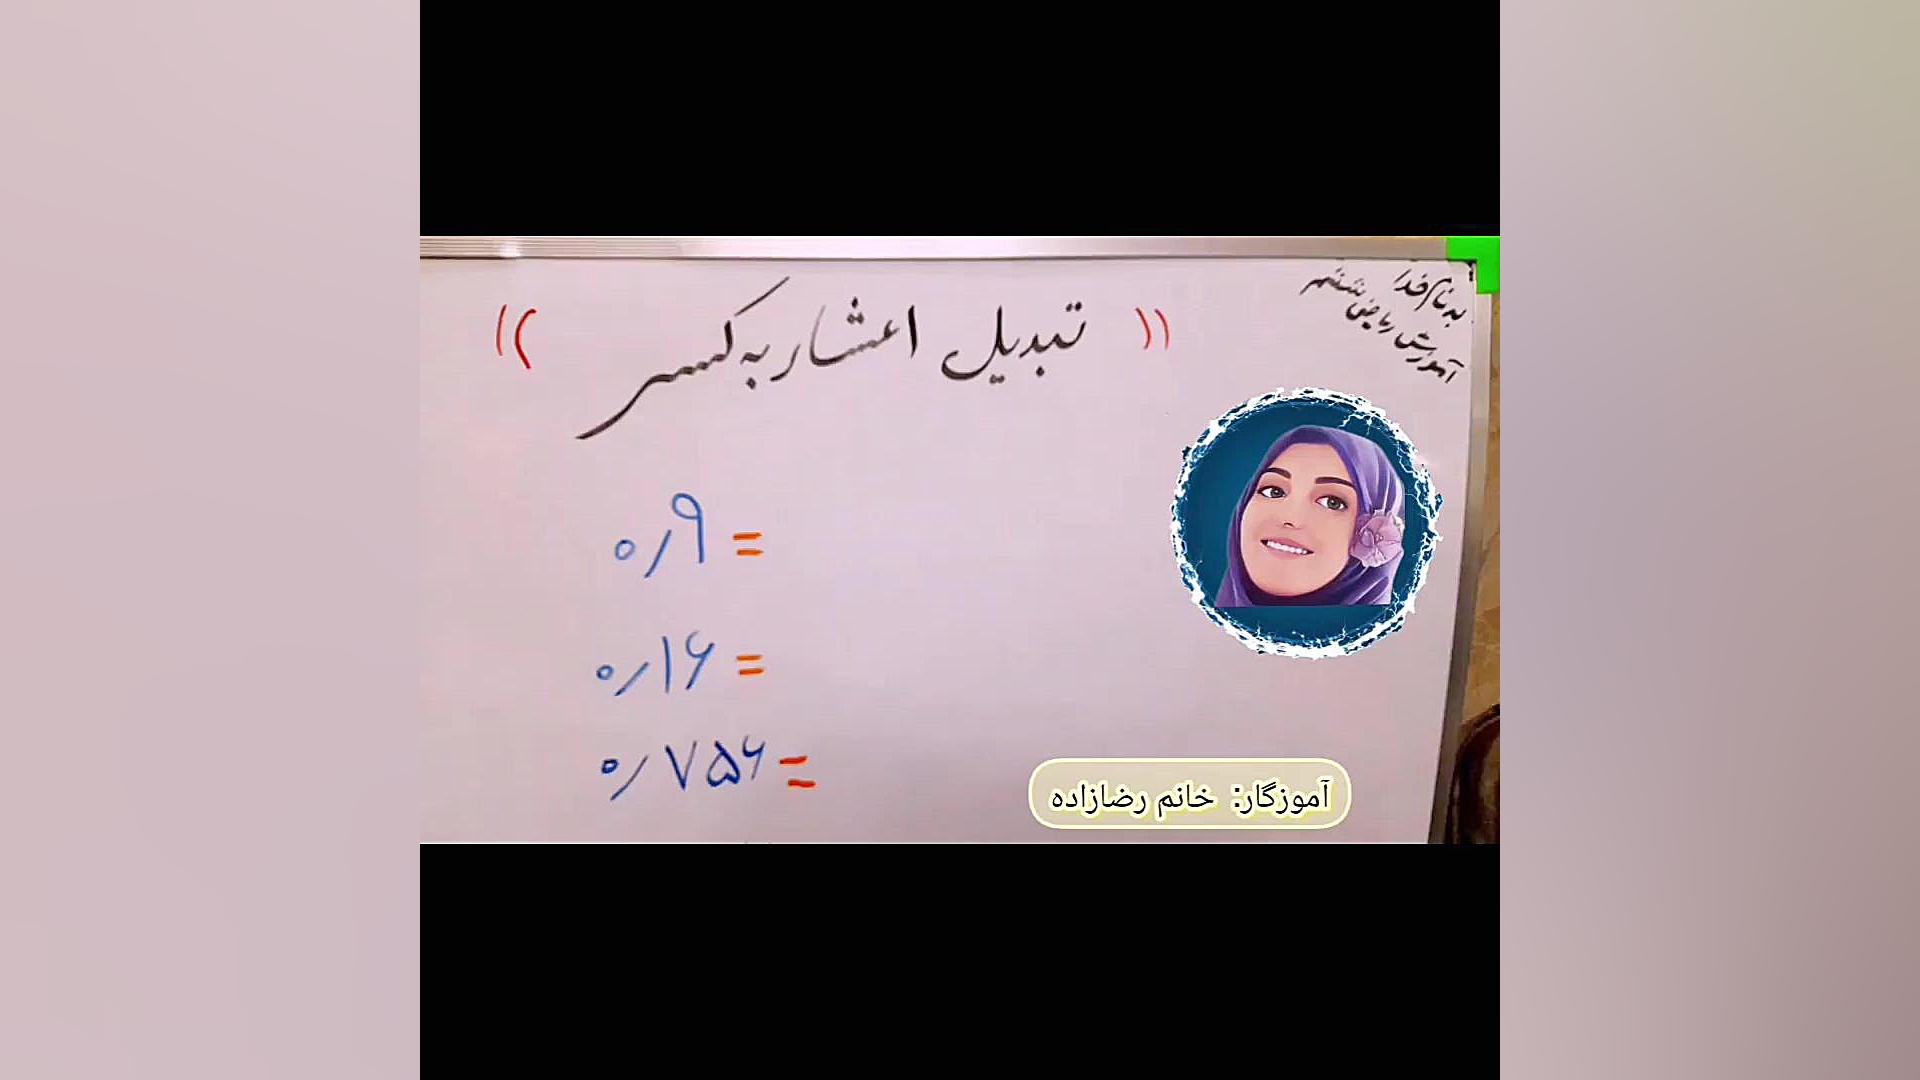 به نام خدا
آموزش ریاضی ششم
(( تبدیل اعشار به کسر ))
۰٫۹ =
۰٫۱۶ =
۰٫۷۵۶ =
آموزگار: خانم رضازاده